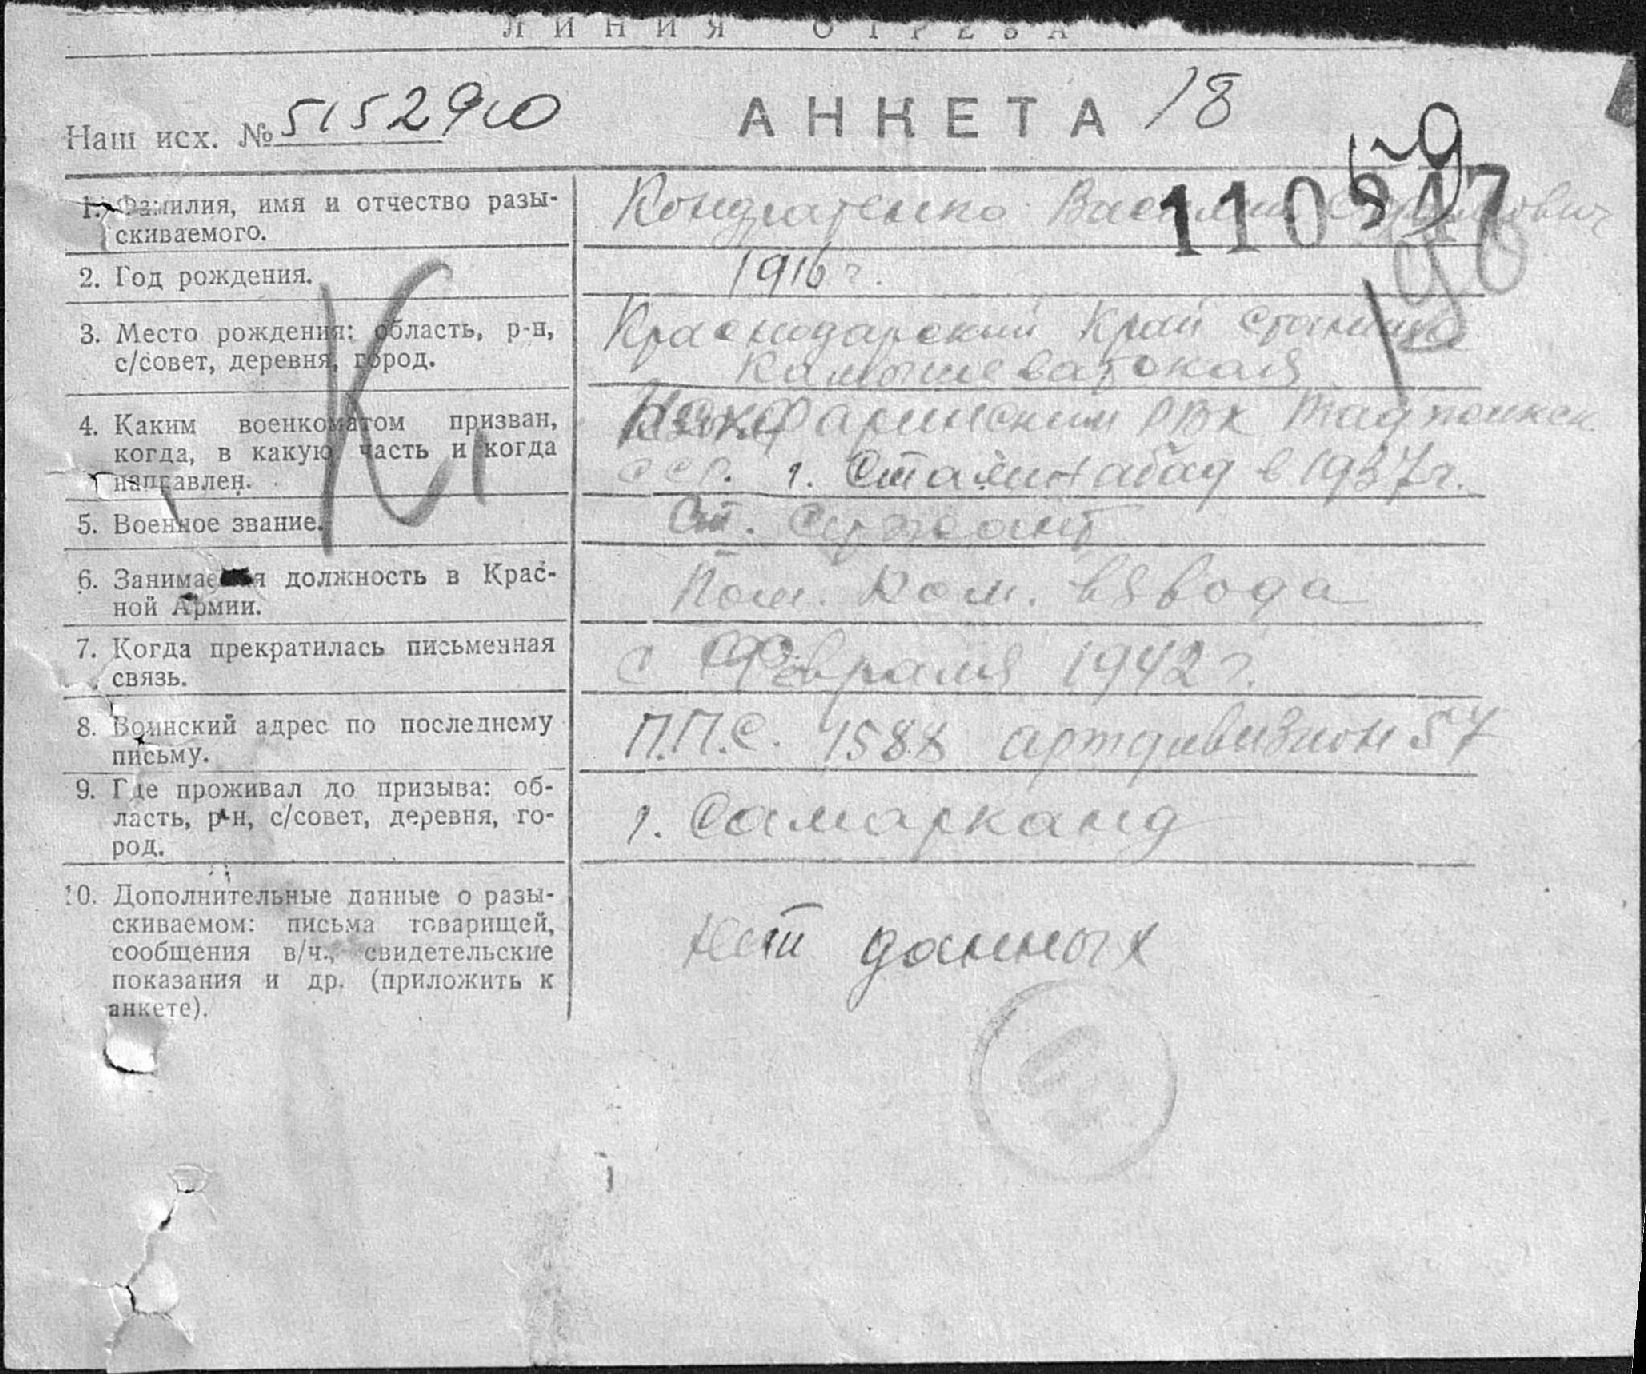 ЛИНИЯ ОТРЕЗА
Наш исх. № 5152910 АНКЕТА 18
1. Фамилия, имя и отчество разы-
скиваемого.
Кондратенко Василий
2. Год рождения.
1916 г.
3. Место рождения: область, р-н,
с/совет, деревня, город.
Краснодарский Край станица
Камышеватокая
4. Каким военкоматом призван,
когда, в какую часть и когда
направлен.
РВК Таджикск.
ССР. г. Сталинабад в 1937 г.
5. Военное звание.
Ст. Сержант
6. Занимаемая должность в Крас-
ной Армии.
Пом. Ком. взвода
7. Когда прекратилась письменная
связь.
с Февраля 1942 г.
8. Воинский адрес по последнему
письму.
П.П.С. 1588 артдивизион 57
9. Где проживал до призыва: об-
ласть, р-н, с/совет, деревня, го-
род.
г. Самарканд
10. Дополнительные данные о разы-
скиваемом: письма товарищей,
сообщения в/ч., свидетельские
показания и др. (приложить к
анкете).
нет данных